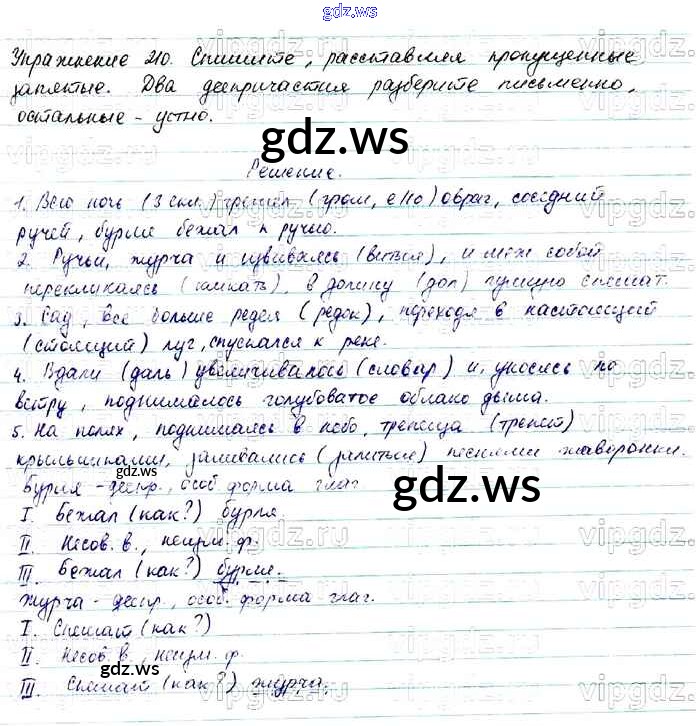 gdz.ws
Упражнение 210. Спишите, расставляя пропущенные
запятые. Два деепричастия разберите письменно,
остальные - устно.
gdz.ws
Решение.
1. Всю ночь (3 скл.) гремел (гром, е//о) овраг, соседний
ручей, бурля бежал к ручью.
2. Ручьи, журча и извиваясь (виться), и меж собой
перекликаясь (кликать), в долину (дол) гулкую спешат.
3. Сад, все больше редея (редок), переходя в настоящий
(стоящий) луг, спускался к реке.
4. Вдали (даль) увеличивалось (словар) и, уносясь по
ветру, поднималось голубоватое облако дыма.
5. На полях, поднимаясь в небо, трепеща (трепет)
крылышками, заливались (залиться) песнями жаворонки.
Бурля - деепр., особ. форма глаг.
gdz.ws
gdz.ws
I. Бежал (как?) бурля.
II. Несов. в., неизм. ф.
III. Бежал (как?) бурля.
Журча - деепр., особ. форма глаг.
I. Спешат (как?)
II. Несов. в., неизм. ф.
III. Спешат (как?) журча.
gdz.ws